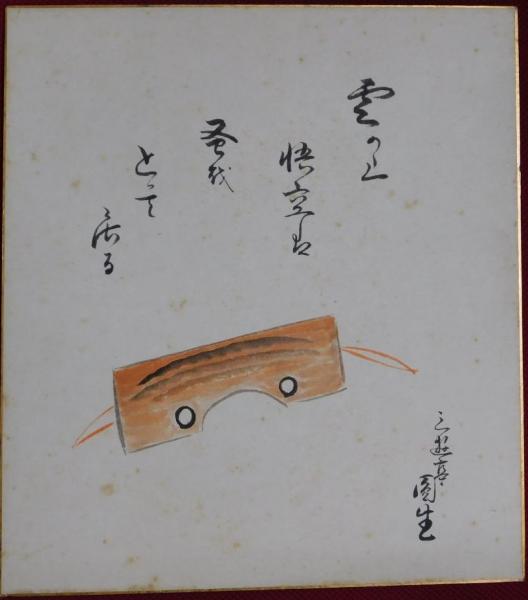 雲の上
悟空は
蚤を
とって
居る
三遊亭
圓生